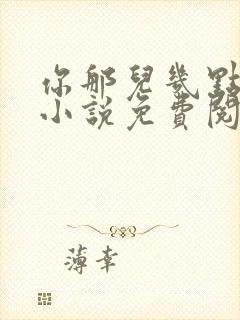 你那兒幾點
小説免費閱
薄幸